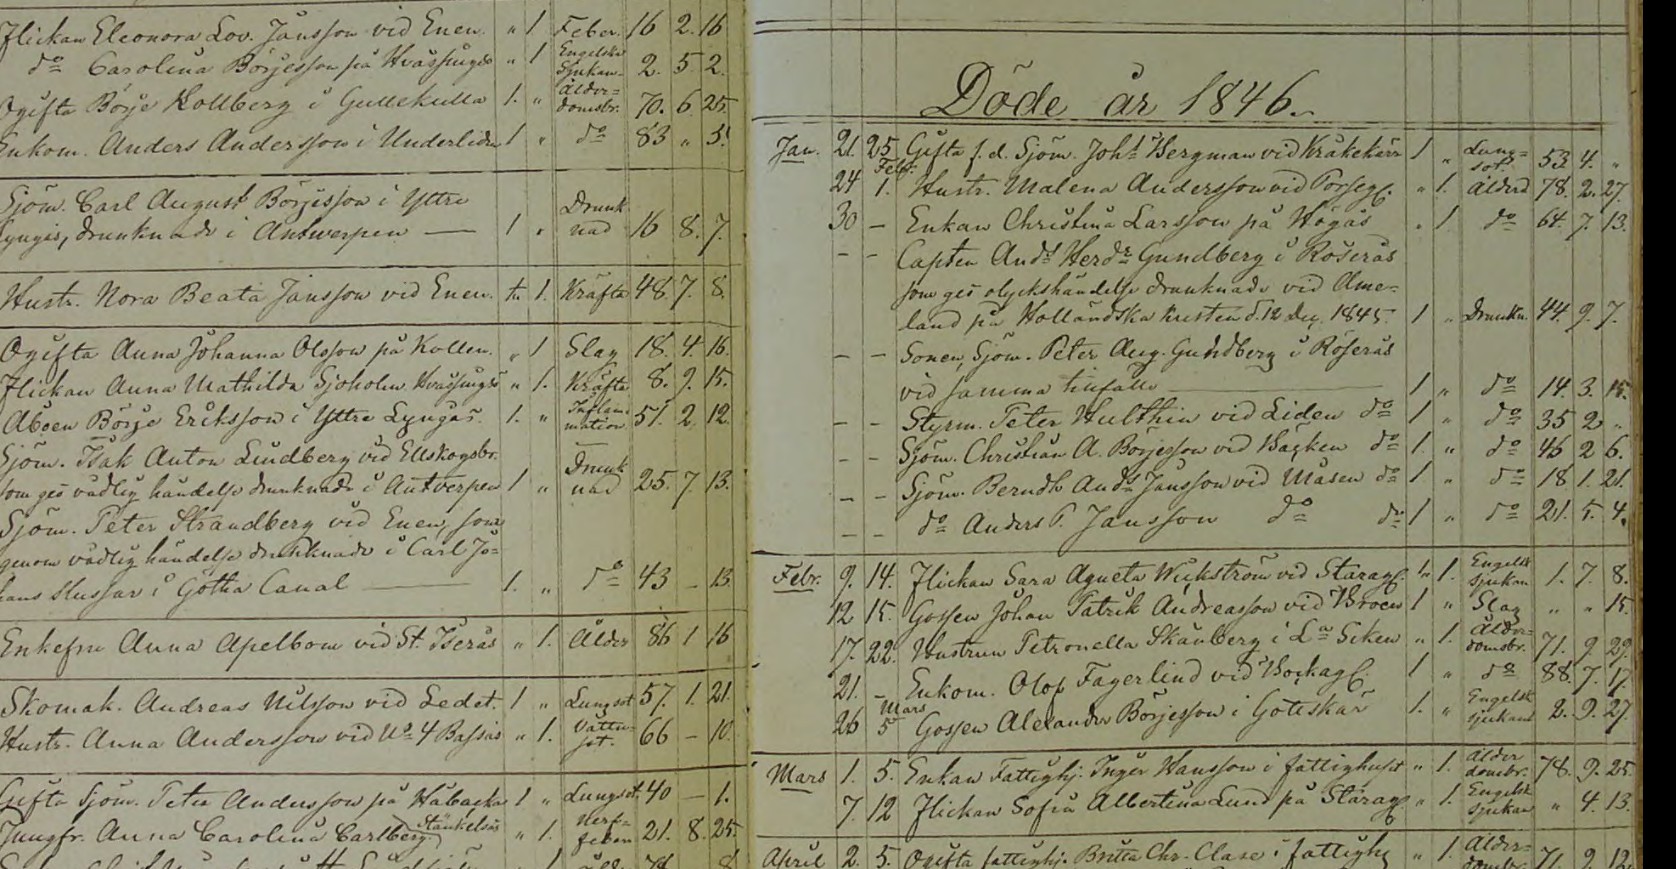 Flickan Eleonora Lov. Jansson vid Enen. " 1 Feber 16 2. 16
do Carolina Börjesson på Hvassungs " 1 Engelska Sjukan 2. 5 2.
Ogifta Börje Kollberg i Gullekulla 1. " Ålder= domsbr. 70. 6 25.
Enkom. Anders Andersson i Underliden 1 " do 83 " 5.
Sjöm. Carl August Börjesson i Yttre
Lyngås, drunknade i Antwerpen — 1 " Drunk nad 16 8. 7.
Hustr. Nora Beata Jansson vid Enen. 1. Kräfta 48. 7. 8.
Ogifta Anna Johanna Olsson på Kollen. " 1 Slag 18. 4. 16.
Flickan Anna Mathilda Sjöholm Hvassungs " 1. Kräfta 8. 9. 15.
Åboen Börje Eriksson i Yttre Lyngås. 1. " Inflam mation 51. 2. 12.
Sjöm. Isak Anton Lindberg vid Ellskogsbr.
som ges vådlig händelse drunknade i Antverpen 1 " Drunk nad 25. 7. 13.
Sjöm. Peter Strandberg vid Enen, som
genom vådlig händelse drunknade i Carl Jo=
hans Slussar i Götha Canal — 1. " do 43 – 13
Enkefru Anna Apelbom vid St. Iserås " 1. Ålder 86 1 16
Skomak. Andreas Nilsson vid Ledet. 1 " Lungsot 57. 1. 21.
Hustr. Anna Andersson vid No 4 Bassås " 1. Vattu= sot. 66 – 10.
Gifta Sjöm. Peter Andersson på Håbacka 1 " Lungsot. 40 – 1.
Jungfr. Anna Carolina Carlberg Stänkelsås " 1. Nerf= feber 21. 8. 25.
Döde år 1846.
Jan. 21. 25. Gifta f.d. Sjöm. Joht Bergman vid Kråkekärr 1 " Lung= sot. 53 4. "
24 Febr. 1. Hustr. Malena Andersson vid Porseg. " 1. ålderd 78. 2. 27.
30 – Enkan Christina Larsson på Högås " 1 do 64. 7. 13.
– – Capten Ands Herdr Gundberg i Röserås
som ges olyckshändelse drunknade vid Ame=
land på Holländska kusten d. 12 Dec. 1845. 1 " Drunkn. 44. 9. 7.
– – Sonen, Sjöm. Peter Aug. Gundberg i Röserås
vid samma tillfälle — 1 " do 14. 3. 15.
– – Styrm. Peter Hulthin vid Liden do 1 " do 35 2 "
– – Sjöm. Christian A. Börjesson vid Backen do 1. " do 46 2 6.
– – Sjöm. Berndh. Ands Jansson vid Måsen do 1 " do 18 1. 21.
– – do Anders P. Jansson do do 1 " do 21. 5. 4.
Febr. 9. 14. Flickan Sara Agneta Wickström vid Starag. " 1. Engelsk sjukan 1. 7. 8.
12 15. Gossen Johan Patrik Andreasson vid Broen 1 " Slag " " 15.
17. 22. Hustrun Petronella Skanberg i La Seken " 1. Ålder= domsbr. 71. 9 29.
21. – Enkom. Olof Fagerlind vid Bockag. 1 " do 88. 7. 17.
26 Mars 5 Gossen Alexander Börjesson i Goteskär 1. " Engelsk sjukans 2. 9. 27.
Mars 1. 5. Enkan Fattighj. Inger Hansson i fattighuset " 1. Ålder domsbr. 78. 9. 25.
7. 12 Flickan Sofia Albertina Lund på Starag. " 1. Engelsk sjukan " 4. 13.
April 2. 5. Ogifta fattighj. Britta Chr. Clase i fattigh " 1. Ålder= domsbr. 71. 9. 12.